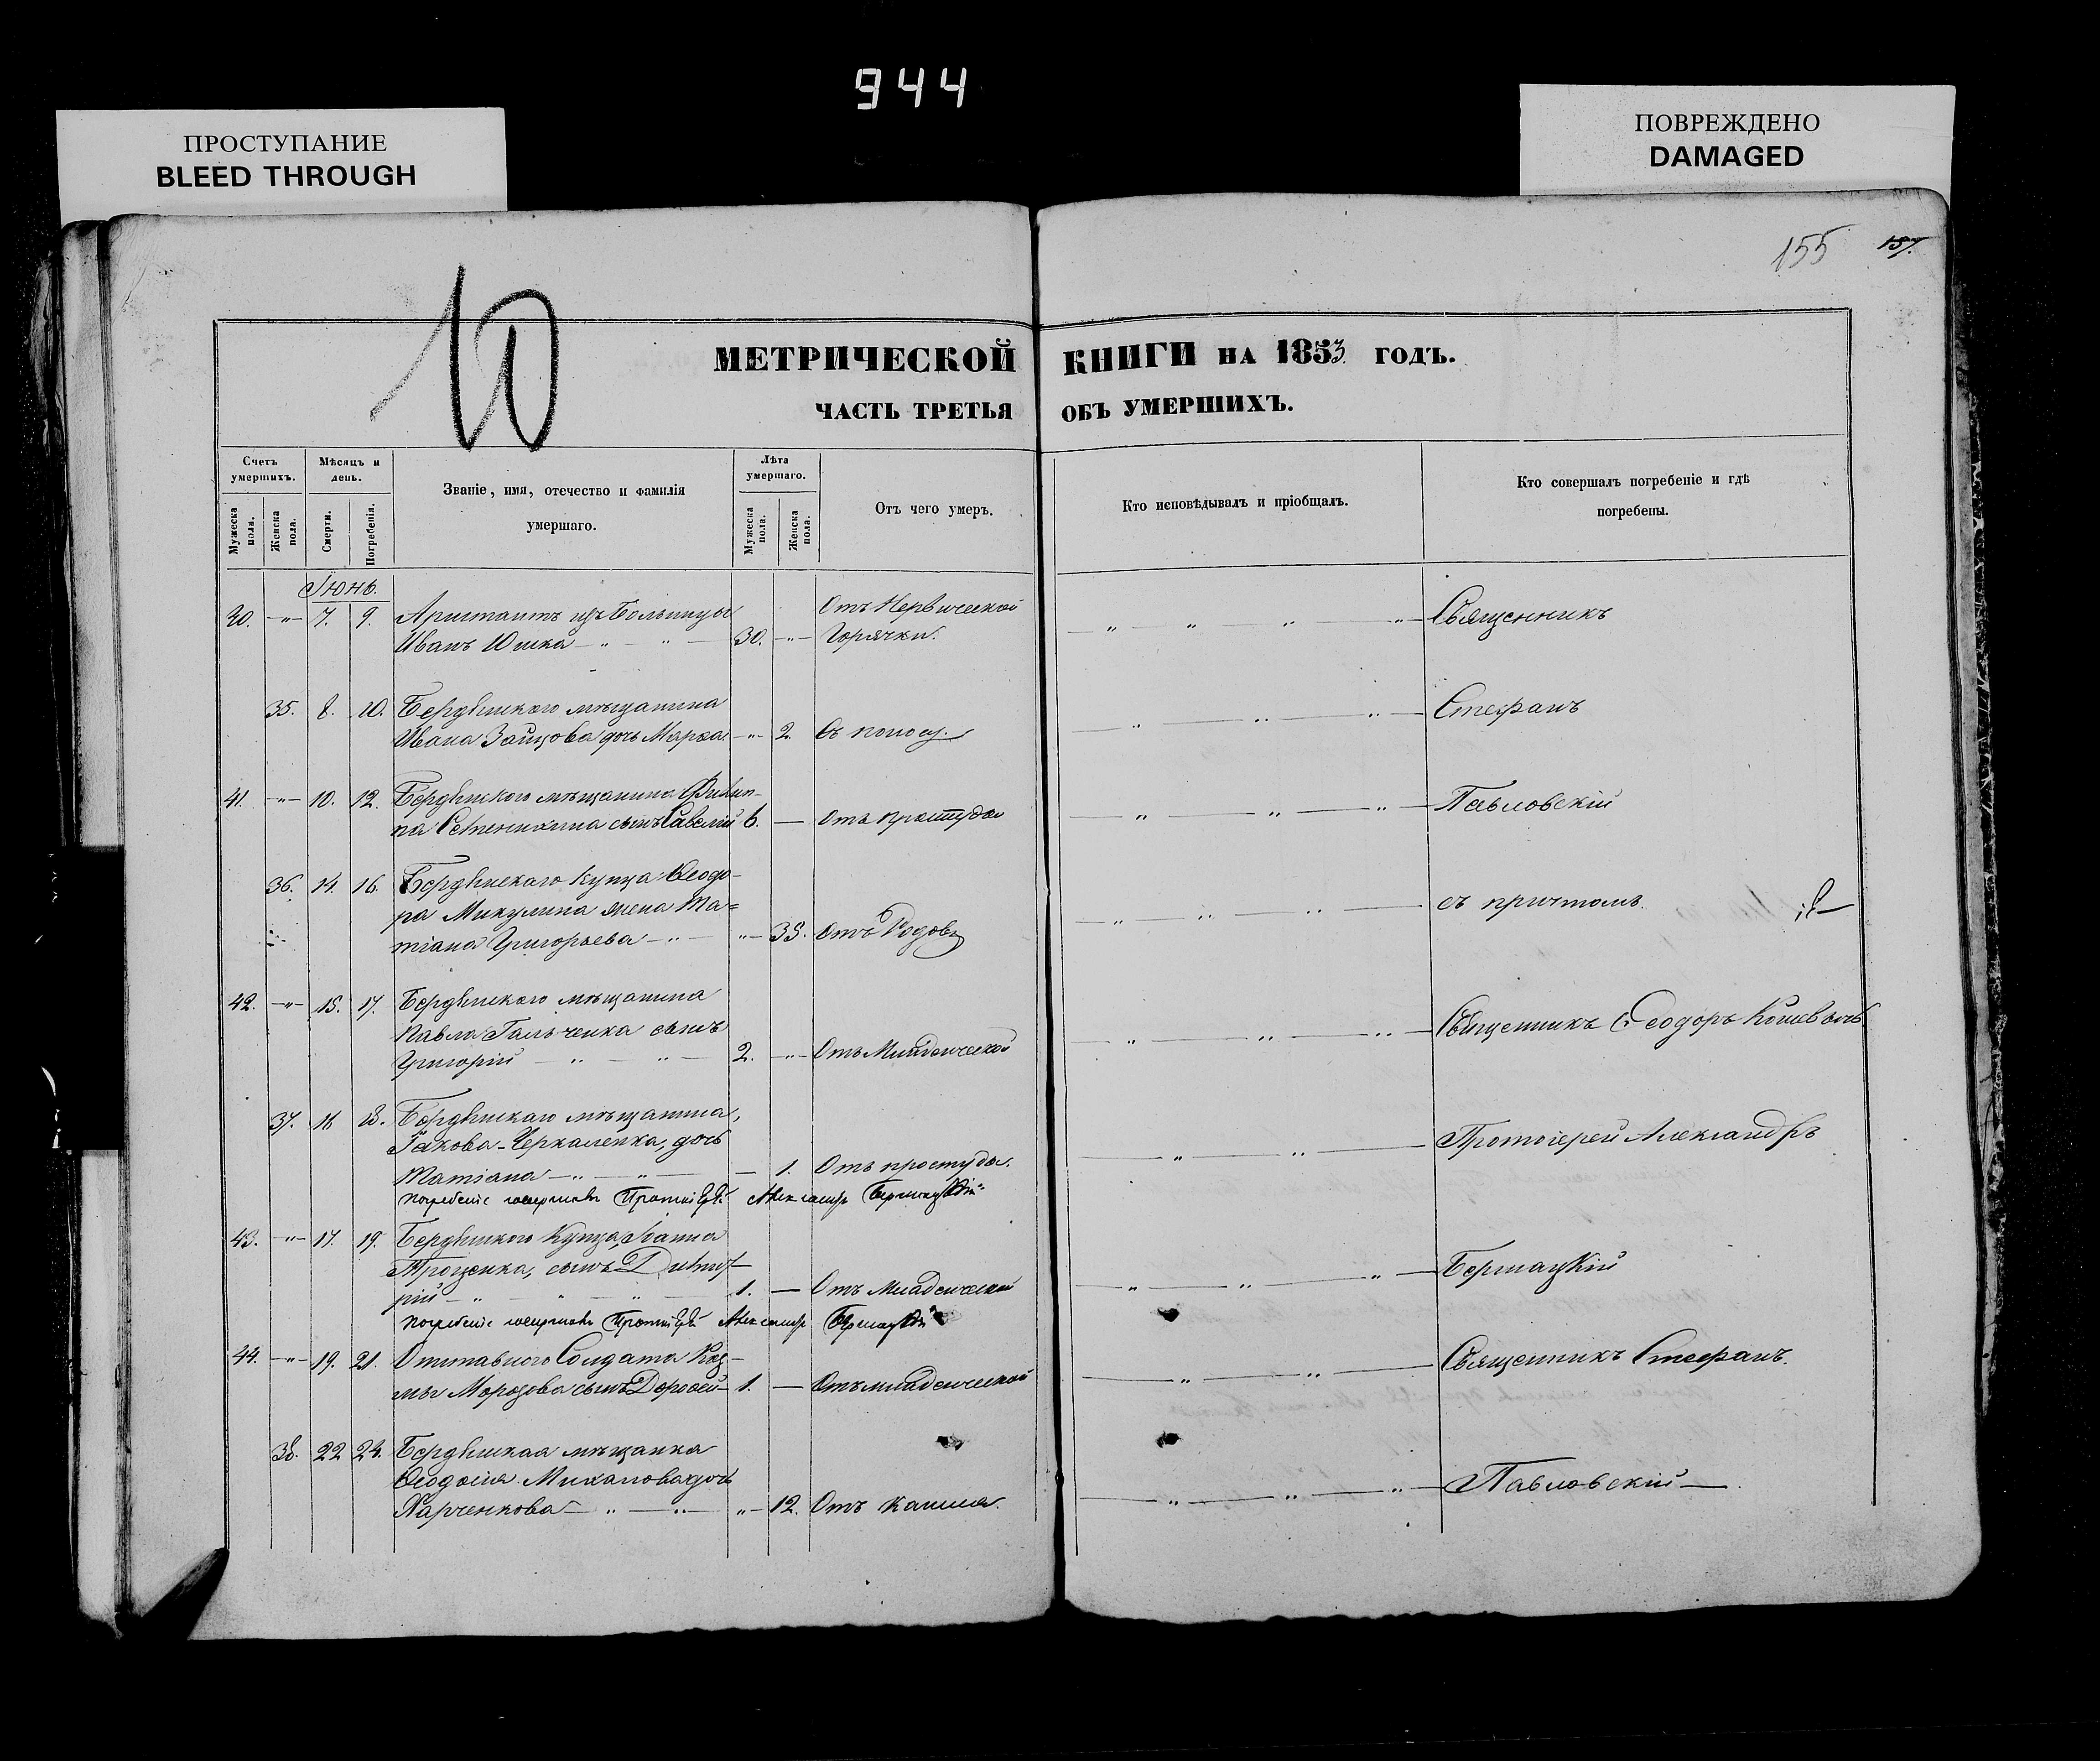 944
ПРОСТУПАНИЕ
BLEED THROUGH
ПОВРЕЖДЕНО
DAMAGED
155 157.
10
МЕТРИЧЕСКОЙ КНИГИ НА 1853 ГОДЪ.
ЧАСТЬ ТРЕТЬЯ ОБЪ УМЕРШИХЪ.
Счетъ умершихъ.
Мужеска пола.
Женска пола.
Мѣсяцъ и день.
Смерти.
Погребенія.
Званіе, имя, отечество и фамилія
умершаго.
Лѣта умершаго.
Мужеска пола.
Женска пола.
Отъ чего умеръ.
Кто исповѣдывалъ и пріобщалъ.
Кто совершалъ погребеніе и гдѣ
погребены.
Іюнь.
7. 9. Арестантъ изъ Больницы Отъ Нервической Священникъ
Иванъ Юшка 30. Горячки.
35. 8. 10. Бердянскаго мѣщанина Стефанъ
Ивана Зайцова дочь Марѳа 2.
41. 10. 12. Бердянскаго мѣщанина Филип- Павловскій
па сынъ Савелій 6. Отъ простуды
36. 14. 16. Бердянскаго Купца Ѳеодо- съ причтомъ
ра Микулина жена Та=
тіана Григорьева 35. Отъ Родовъ
42. 15. 17. Бердянскаго мѣщанина Священникъ Ѳеодоръ
Павла Гальченка сынъ
Григорій 2. Отъ Младенческой
37. 16 18. Бердянскаго мѣщанина,
Іакова Черкаленка, дочь Протоіерей Александръ
Татіана 1. Отъ простуды.
погребеніе совершалъ Протоіерей Александръ
43. 17. 19. Бердянскаго Купца, Іоанна
Троценка, сынъ Димит-
рій 1. Отъ Младенческой
погребеніе совершалъ Протоіерей Александръ
44. 19. 21. Отставнаго Солдата Коз- Священникъ Стефанъ.
мы Морозова сынъ Дороѳей 1. Отъ младенческой
38. 22 24. Бердянская мѣщанка
Ѳеодосія дочь Павловскій
Харченкова 12. Отъ кашля.